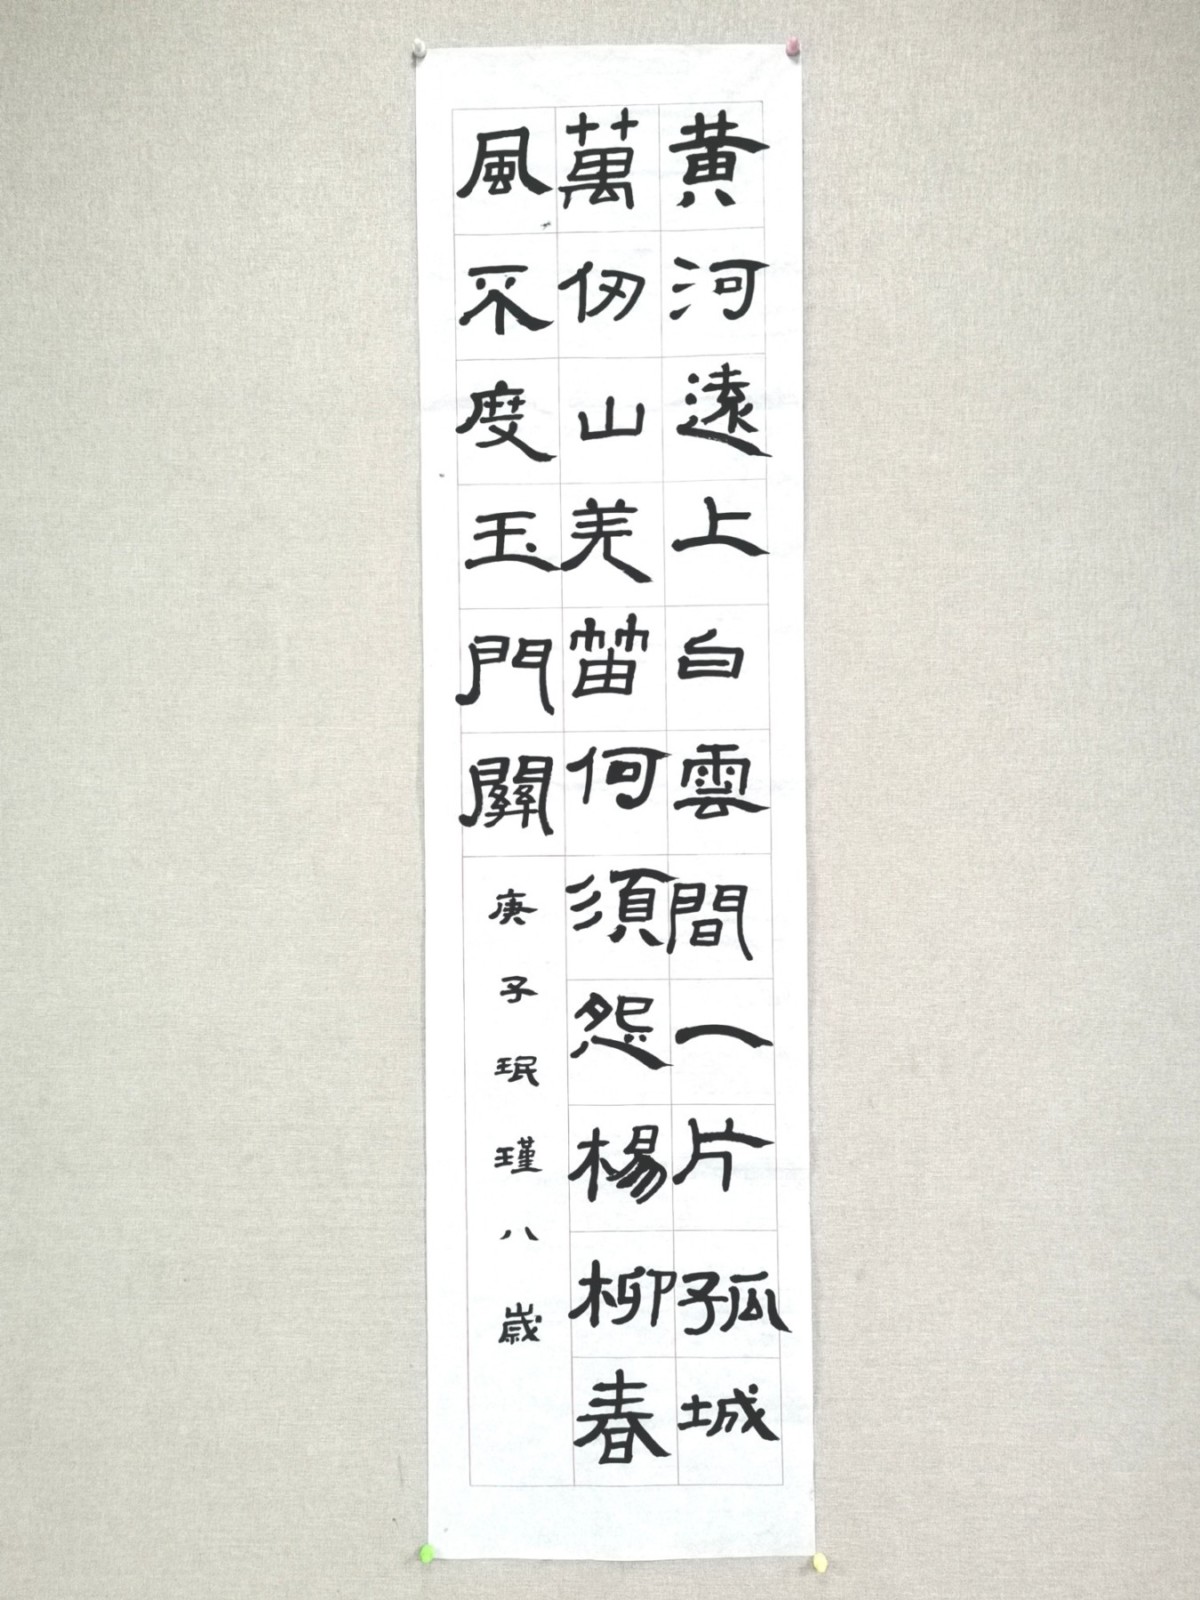 黄河遠上白雲間一片孤城
萬仞山羌笛何須怨楊柳春
風不度玉門關
庚子珉瑾八歲